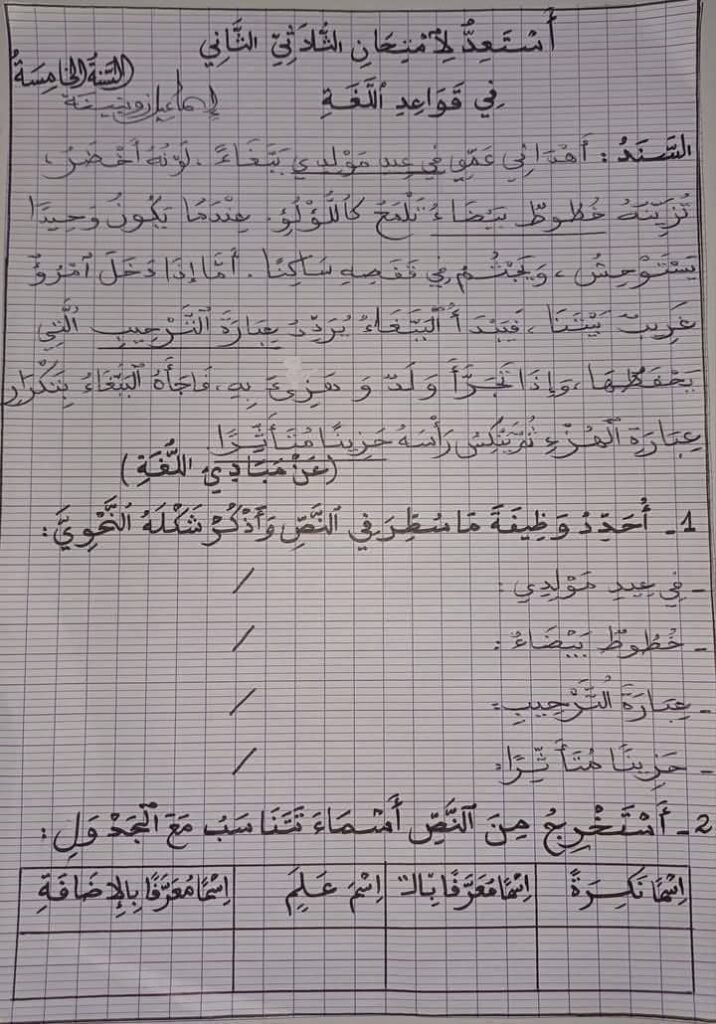 أَسْتَعِدُّ لِاِمْتِحَانِ الثُّلَاثِيِّ الثَّانِي
السَّنَةُ الخَامِسَةُ
فِي قَوَاعِدِ اللُّغَةِ
السَّنَدُ: أَهْدَانِي عَمِّي فِي عِيدِ مَوْلِدِي بَبَّغَاءً، لَوْنُهُ أَخْضَرُ،
تُزَيِّنُهُ خُطُوطٌ بَيْضَاءُ تَلْمَعُ كَاللُّؤْلُؤِ. عِنْدَمَا يَكُونُ وَحِيدًا
يَسْتَوْحِشُ، وَيَجْثُمُ فِي قَفَصِهِ سَاكِنًا. أَمَّا إِذَا دَخَلَ امْرُؤٌ
غَرِيبٌ بَيْتَنَا، فَيَبْدَأُ الْبَبَّغَاءُ يُرَدِّدُ عِبَارَةَ التَّرْحِيبِ الَّتِي
يَحْفَظُهَا، وَإِذَا تَجَرَّأَ وَلَدٌ وَ هَزِئَ بِهِ، فَاجَأَهُ الْبَبَّغَاءُ بِتَكْرَارِ
عِبَارَةِ الْهُزْءِ ثُمَّ يُنَكِّسُ رَأْسَهُ حَزِينًا مُتَأَثِّرًا
(عَنْ مَبَادِئِ اللُّغَةِ)
1- أُحَدِّدُ وَظِيفَةَ مَا سُطِّرَ فِي النَّصِّ وَأَذْكُرُ شَكْلَهُ النَّحْوِيَّ:
- فِي عِيدِ مَوْلِدِي: /
- خُطُوطٌ بَيْضَاءُ: /
- عِبَارَةَ التَّرْحِيبِ: /
- حَزِينًا مُتَأَثِّرًا: /
2- أَسْتَخْرِجُ مِنَ النَّصِّ أَسْمَاءَ تَتَنَاسَبُ مَعَ الْجَدْوَلِ:
اِسْمًا نَكِرَةً اِسْمًا مُعَرَّفًا بِالـ اِسْمَ عَلَمٍ اِسْمًا مُعَرَّفًا بِالإِضَافَةِ